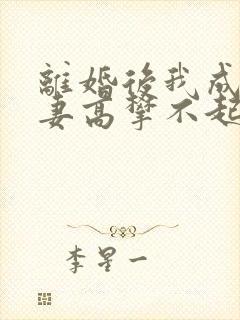 離婚後我成
妻高攀不起
李星一